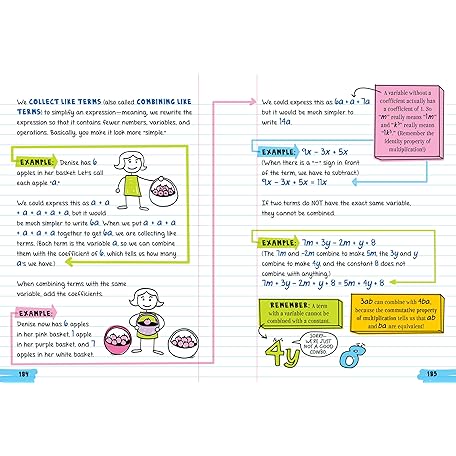 We COLLECT LIKE TERMS (also called COMBINING LIKE
TERMS) to simplify an expression—meaning, we rewrite the
expression so that it contains fewer numbers, variables, and
operations. Basically, you make it look more "simple."
EXAMPLE: Denise has 6
apples in her basket. Let's call
each apple "a."
We could express this as a + a
+ a + a + a + a, but it would
be much simpler to write 6a. When we put a + a + a
+ a + a + a together to get 6a, we are collecting like
terms. (Each term is the variable a, so we can combine
them with the coefficient of 6, which tells us how many
a's we have.)
When combining terms with the same
variable, add the coefficients.
EXAMPLE:
Denise now has 6 apples
in her pink basket, 1 apple
in her purple basket, and 7
apples in her white basket.
184
We could express this as 6a + a + 7a
but it would be much simpler to
write 14a.
A variable without a
coefficient actually has
a coefficient of 1. So
"m" really means "1m"
and "k³" really means
"1k³." (Remember the
identity property of
multiplication!)
EXAMPLE: 9x - 3x + 5x
(When there is a "-" sign in front
of the term, we have to subtract.)
9x - 3x + 5x = 11x
If two terms do NOT have the exact same variable,
they cannot be combined.
EXAMPLE: 7m + 3y - 2m + y + 8
(The 7m and -2m combine to make 5m, the 3y and y
combine to make 4y, and the constant 8 does not
combine with anything.)
7m + 3y - 2m + y + 8 = 5m + 4y + 8
REMEMBER: A term
with a variable cannot be
combined with a constant.
3ab can combine with 4ba,
because the commutative property
of multiplication tells us that ab
and ba are equivalent!
SORRY,
WE'RE JUST
NOT A GOOD
COMBO.
4y
8
185